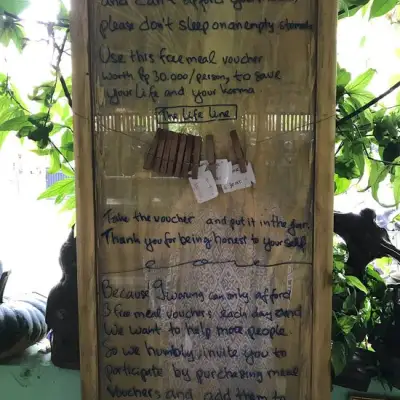 and can't afford
please don't sleep on an empty stomach
Use this free meal voucher
worth Rp 30.000/person, to save
your life and your karma
The Life Line
Take the voucher and put it in the jar.
Thank you for being honest to yourself
Because 9 warung can only afford
3 free meal vouchers each day and
we want to help more people.
So we humbly invite you to
participate by purchasing meal
vouchers and add them to